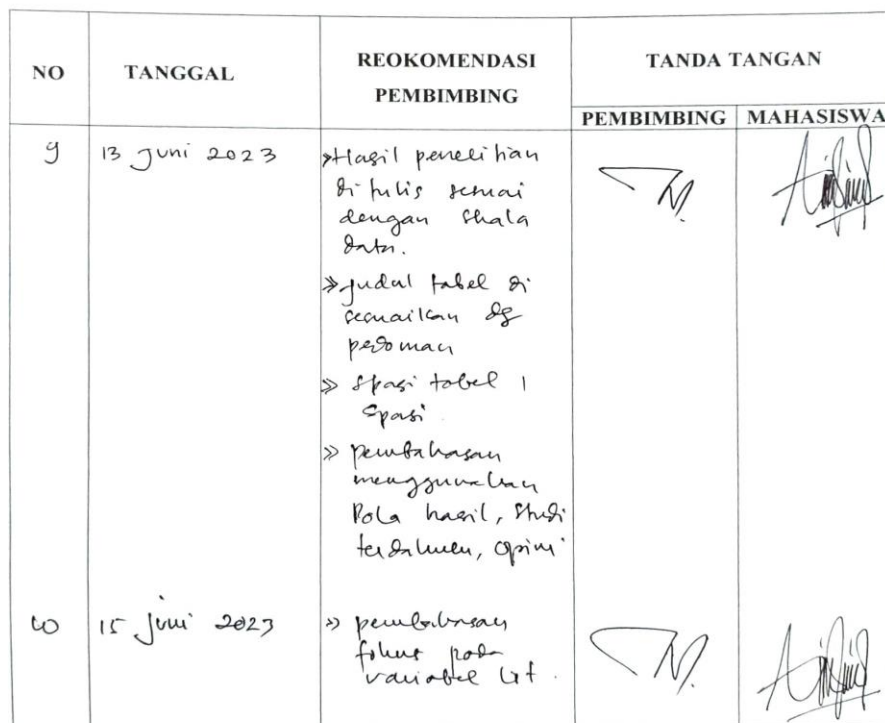 NO TANGGAL REOKOMENDASI PEMBIMBING TANDA TANGAN
PEMBIMBING MAHASISWA
9 13 Juni 2023 » Hasil penelitian
di tulis sesuai
dengan skala
data.
» Judul tabel di
sesuaikan dg
pedoman
» Spasi tabel 1
spasi.
» pembahasan
menggunakan
Pola hasil, studi
terdahulu, opini
10 15 Juni 2023 » pembahasan
fokus pada
variabel